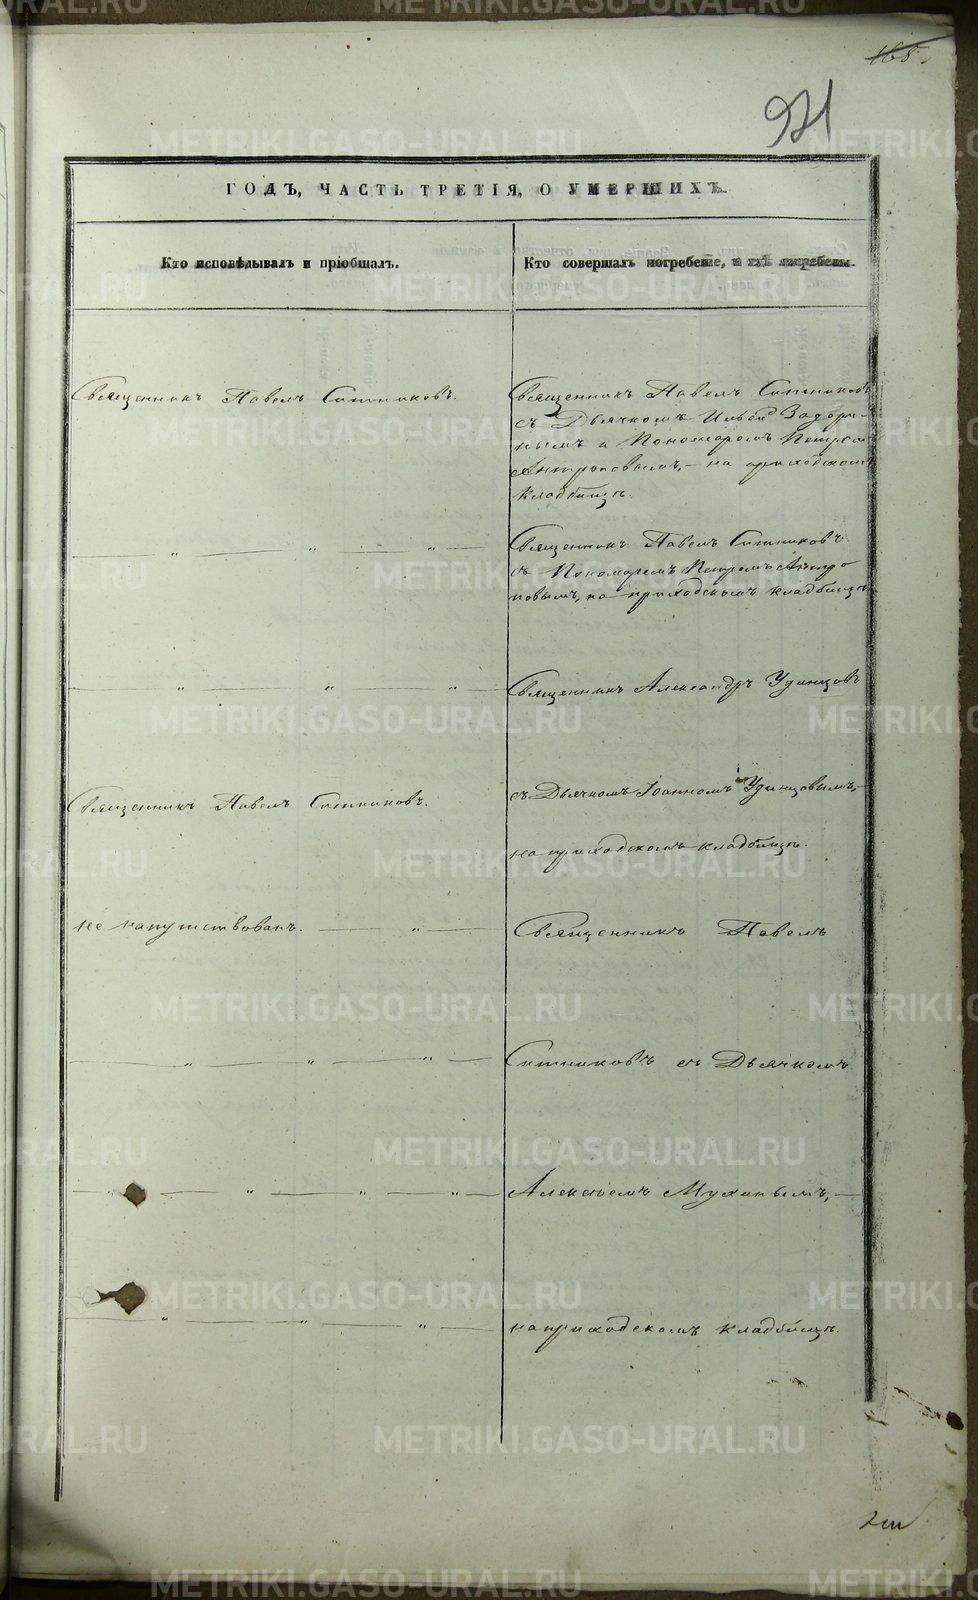 165
921
ГОДЪ, ЧАСТЬ ТРЕТІЯ, О УМЕРШИХЪ.
Кто исповѣдывалъ и пріобщалъ.
Кто совершалъ погребеніе, и гдѣ погребены.
Священникъ Павелъ Ситниковъ.
Священникъ Павелъ Ситниковъ
съ Дьячкомъ Ильёй Задори-
нымъ и Пономаремъ Петромъ
Антроповымъ, – на приходскомъ
кладбищѣ.
— „ — „ — „ —
Священникъ Павелъ Ситниковъ
съ Пономаремъ Петромъ Антро
повымъ, на приходскомъ кладбищѣ
— „ — „ — „ —
Священникъ Александръ Удинцовъ
Священникъ Павелъ Ситниковъ.
съ Дьячкомъ Іоанномъ Удинцовымъ,–
на приходскомъ кладбищѣ.
не напутствованъ. — „ —
Священникъ Павелъ
— „ — „ — „ —
Ситниковъ съ Дьячкомъ
— „ — „ — „ — „ —
Алексѣемъ Мухинымъ, –
— „ — „ — „ —
на приходскомъ кладбищѣ.
METRIKI.GASO-URAL.RU